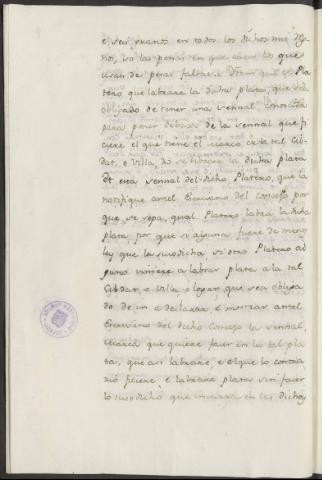 e seis quanos en todos los dichos mis Rey
nos, so las penas en que caen los que
usan de pesas falsas. Otrosi que el Pla
tero que labrare la dicha plata, que sea
obligado de tener una señal conocida
para poner debaxo de la señal que fi
ciere el que tiene el marco de la tal Cib
dat, e Villa, do se labrare la dicha plata
Et esta señal del dicho Platero, que la
notifique antel Escrivano del concejo por
que se sepa, qual Platero labró la dicha
plata, por que si alguna fuere de menos
ley que la susodicha. Si otro Platero al
guno viniere a labrar plata a la tal
Cibdat, o Villa, o logar, que sea obliga
do de ir a declarar e mostrar antel
Escrivano del dicho Concejo la señal,
marca que quiere facer en la tal pla
ta, que asi labrare, e el que lo contra
rio ficiere, e labrare plata sin facer
lo susodicho que incurra en las dichas